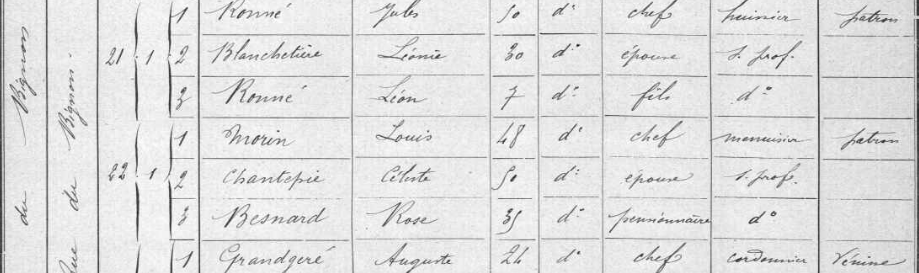 1 Ronné Jules 50 d° chef huissier patron
21 1 2 Blanchetière Léonie 30 d° épouse s. prof.
3 Ronné Léon 7 d° fils d°
1 Morin Louis 48 d° chef menuisier patron
22 1 2 Chantepie Céleste 50 d° épouse s. prof.
3 Besnard Rose 35 d° pensionnaire d°
1 Grandgeré Auguste 24 d° chef cordonnier
du Bignon
Rue du Bignon.